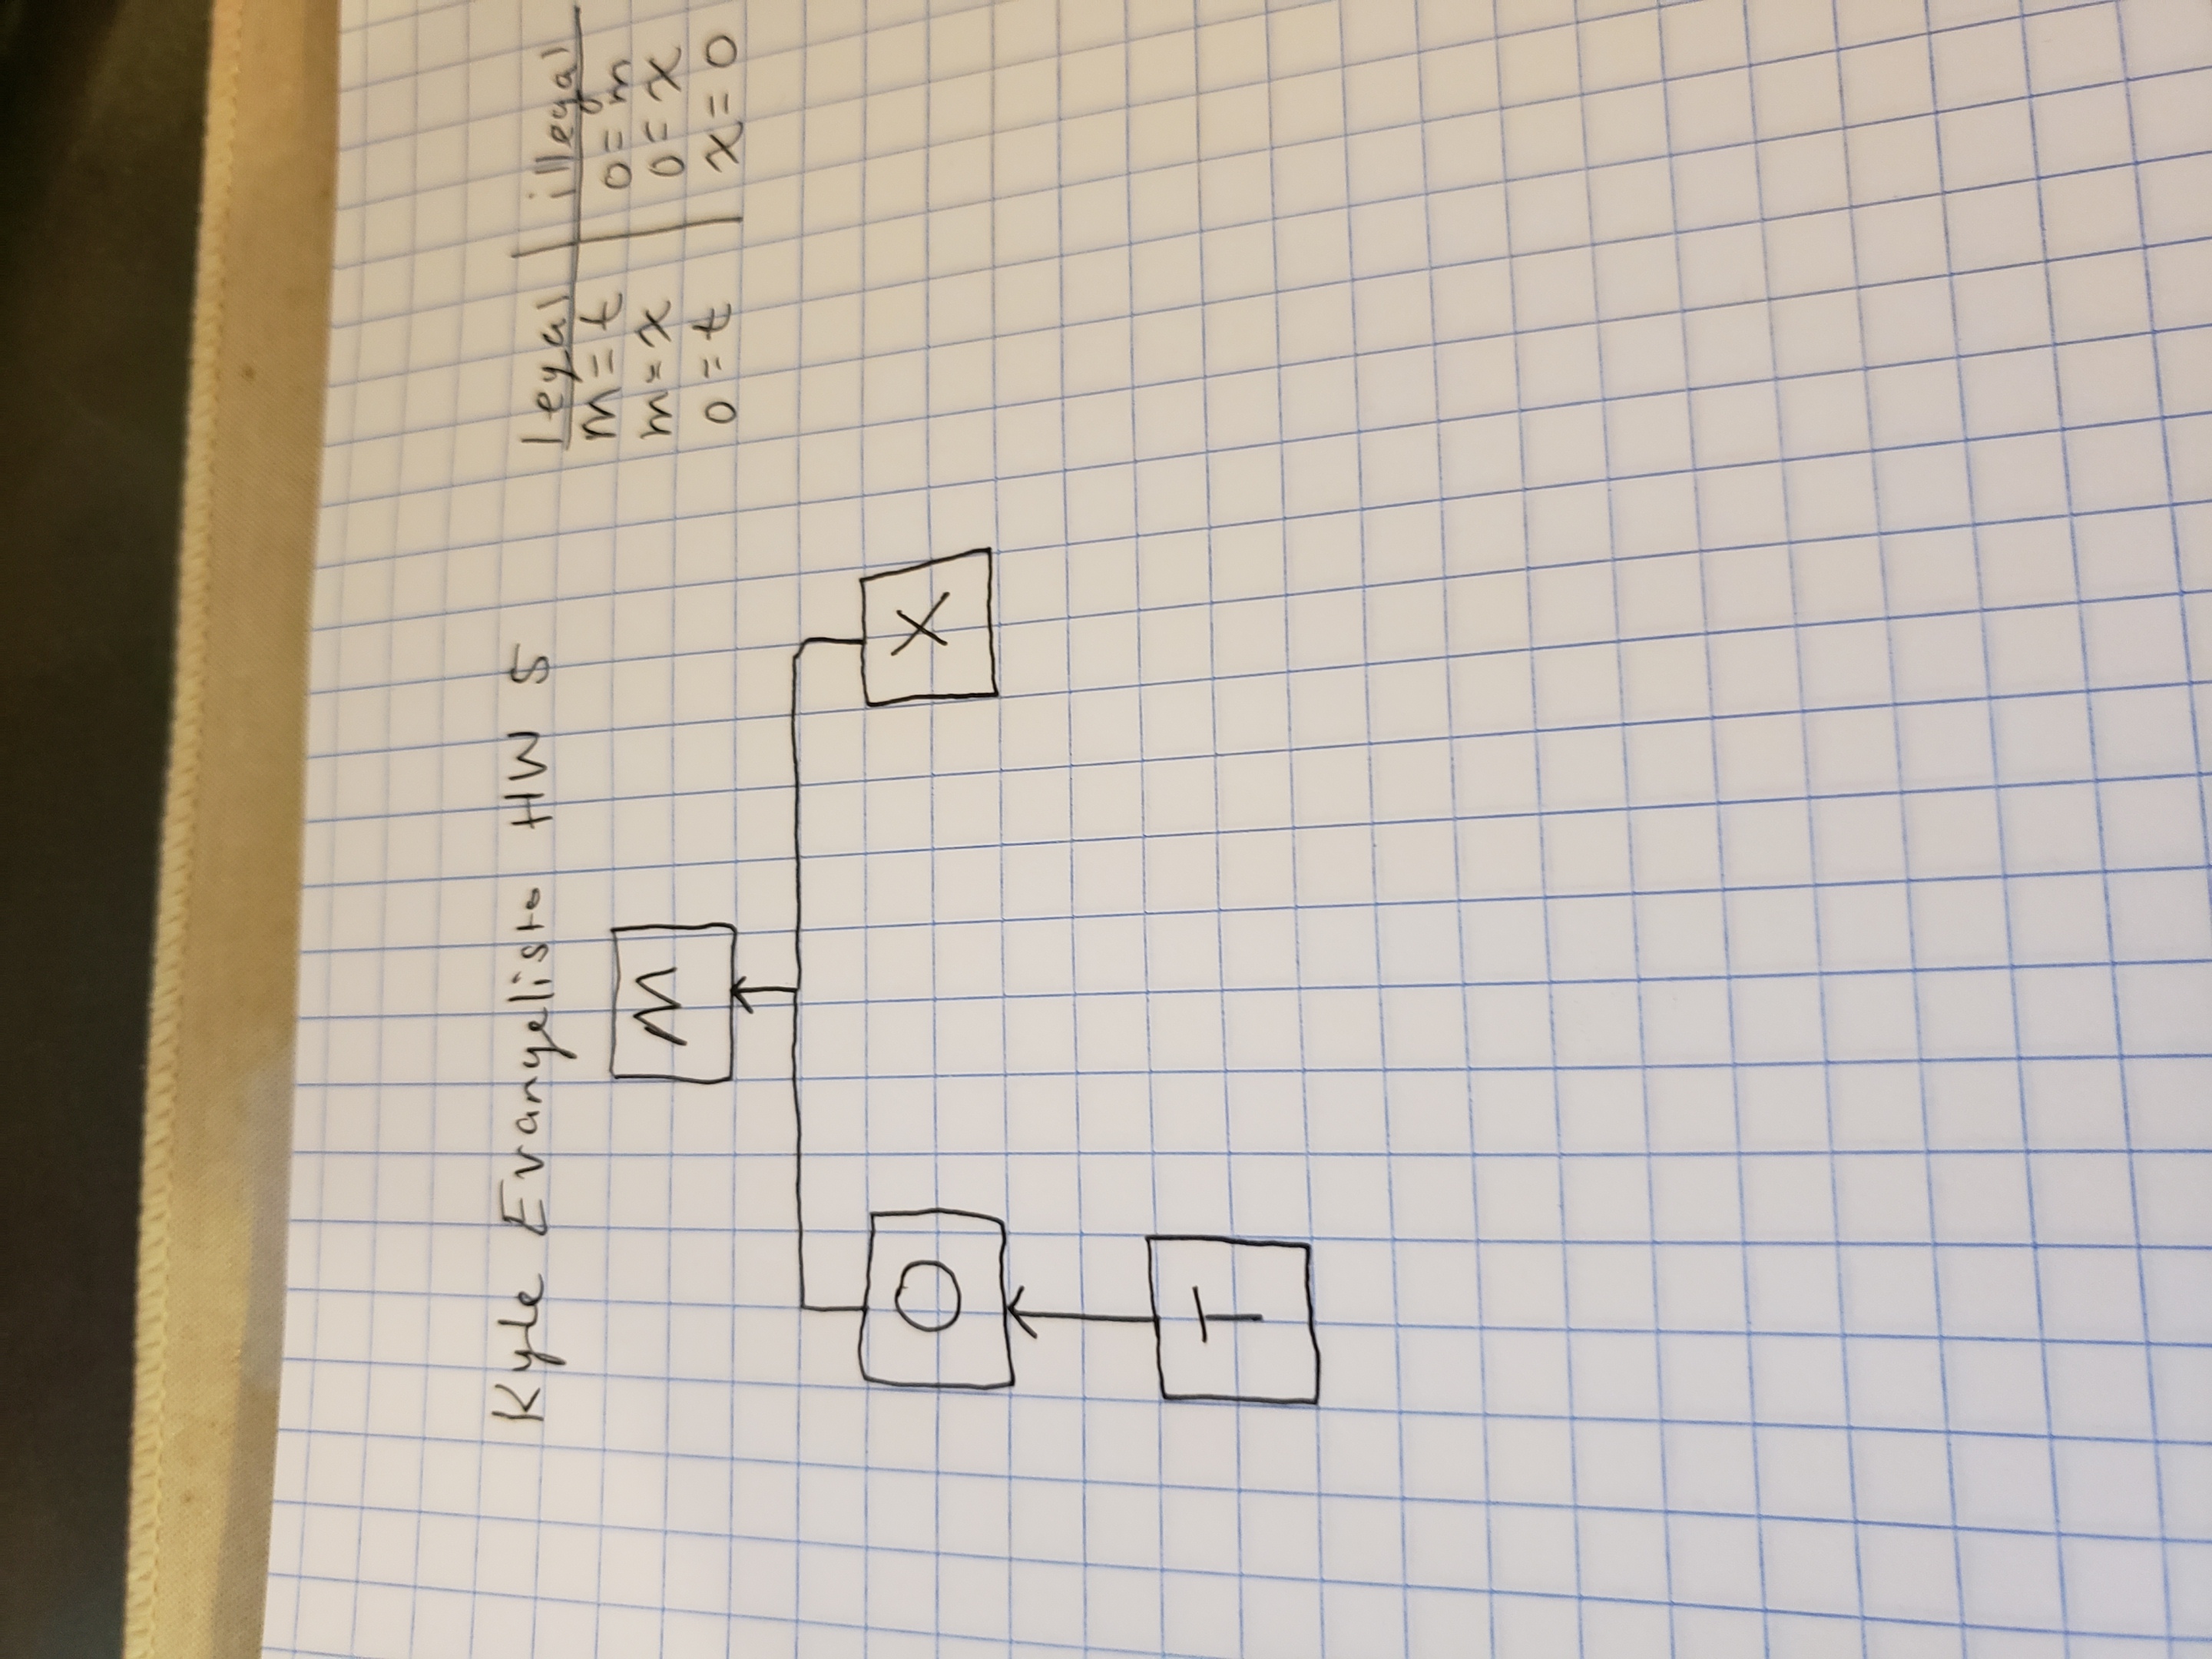 Kyle Evangelista HW 5
legal | illegal
m = t | o = m
m = x | o = x
o = t | x = o
M
O X
T